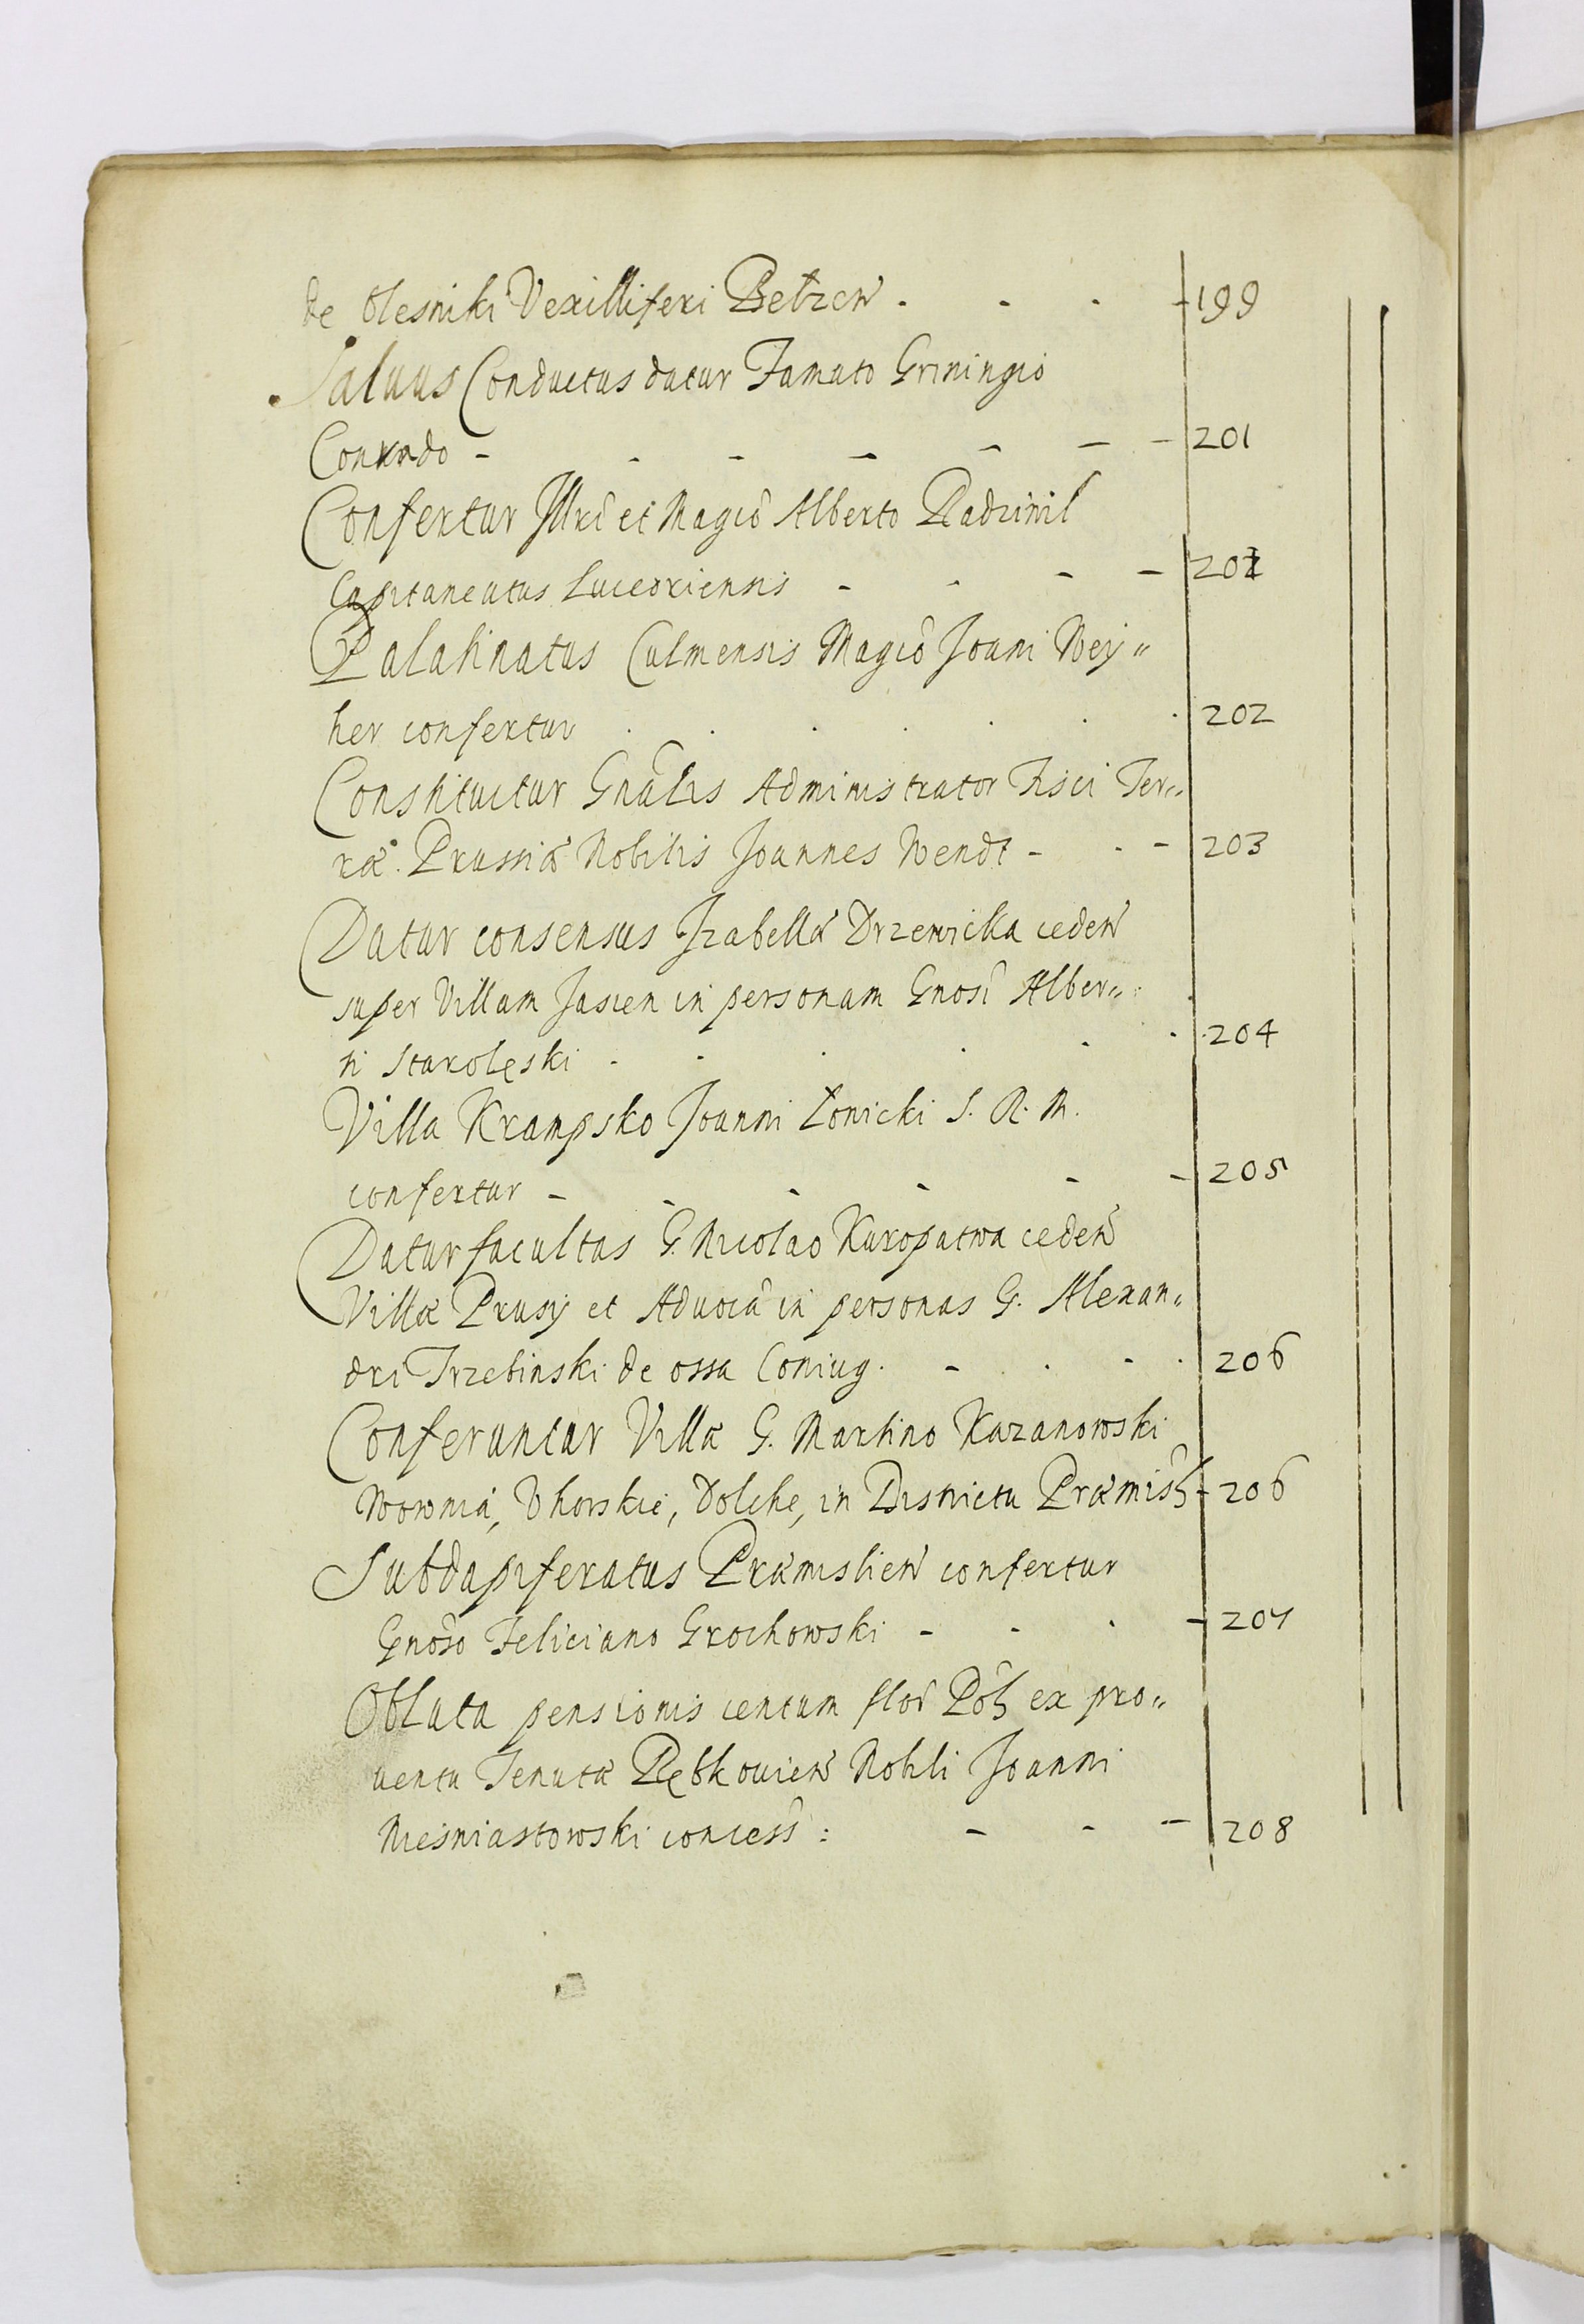 de Olesniki Vexilliferi Bełzen̄ . - - - 199
Saluus Conductus datur Famato Griningio
Conrado - - - - - - - 201
Confertur Illri et Magco Alberto Radziuil
Capitaneatus Luceoriensis - - - - 202
Palatinatus Culmensis Magco Joani Wey„
her confertur . . . . . . 202
Constituitur Gnâlis Administrator Fisci Ter„
ræ. Prussiæ Nobilis Joannes Wendt - - - 203
Datur consensus Izabellæ Drzewicka ceden̄
super Villam Jasien in personam Gnosi Alber„
ti Starolęski - . . . . . 204
Villa Krampsko Joanni Łonicki S. R. M.
confertur - - - - - - 205
Datur facultas G. Nicolao Kuropatwa ceden̄
Villæ Prusy et Aduocia in personas G. Alexan„
dri Trzebinski de ossa Coniug. - . - . 206
Conferuntur Villæ G. Martino Kazanowski
Wownia, Uhorskie, Dolche, in Districtu Præmisl - 206
Subdapiferatus Præmislien̄ confertur
Gnoso Feliciano Grochowski - - . - 207
Oblata pensionis centum flor Pol ex pro„
uentu Tenutæ Rębkouien̄ Nobli Joanni
Niesniastowski concess : - - - 208